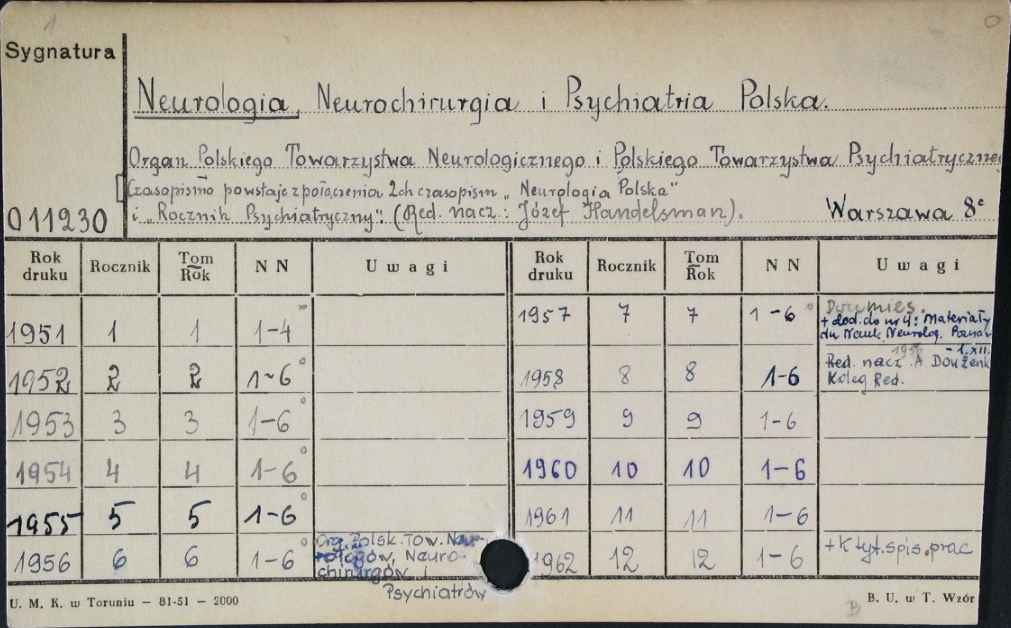 1
Sygnatura
Neurologia, Neurochirurgia i Psychiatria Polska.
Organ Polskiego Towarzystwa Neurologicznego i Polskiego Towarzystwa Psychiatryczneg
Czasopismo powstaje z połączenia 2ch czasopism „Neurologia Polska"
i „Rocznik Psychiatryczny". (Red. nacz.: Józef Handelsman).
Warszawa 8°
011230
Rok druku Rocznik Tom Rok N N Uwagi Rok druku Rocznik Tom Rok N N Uwagi
1951 1 1 1-4 1957 7 7 1-6 Dwumies.
+ dod. do nr 4: Materiały
Nauk. Neurolog. Poznań
1.XII.
1952 2 2 1-6 1958 8 8 1-6 Red. nacz. A
Koleg Red.
1953 3 3 1-6 1959 9 9 1-6
1954 4 4 1-6 1960 10 10 1-6
1955 5 5 1-6 1961 11 11 1-6
1956 6 6 1-6 Org. Polsk. Tow. Neu-
rologów, Neuro-
chirurgów i
Psychiatrów
1962 12 12 1-6 + K tyt. spis. prac
U. M. K. w Toruniu — 81-51 — 2000
B
B. U. w T. Wzór